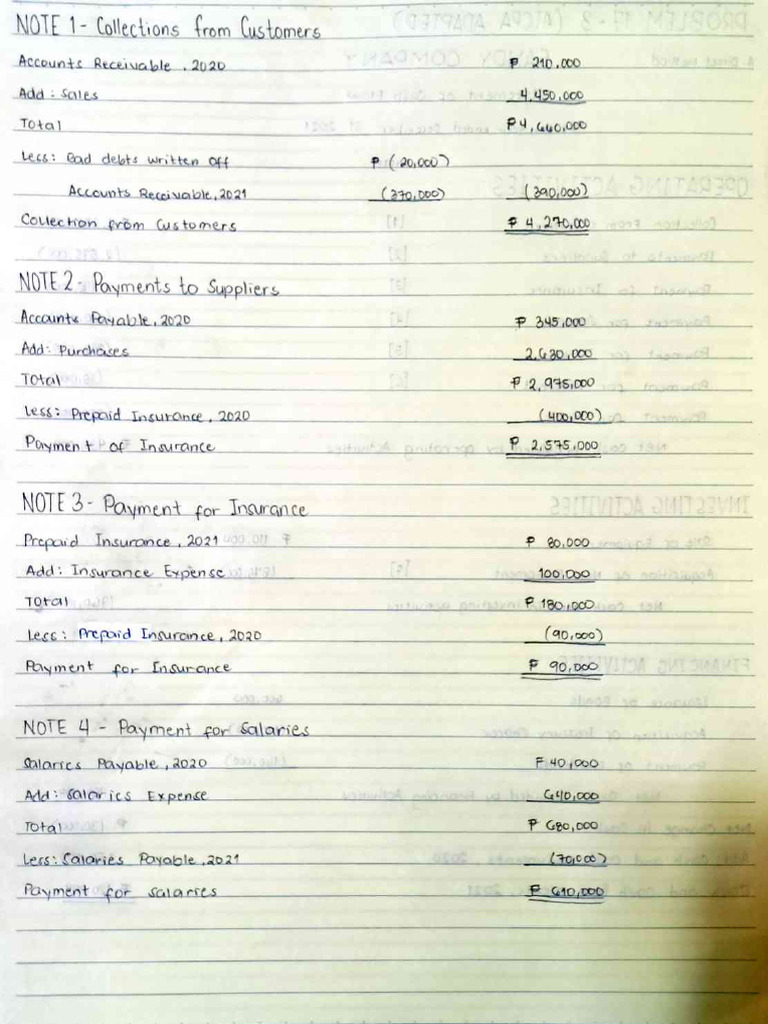 NOTE 1 - Collections from Customers
Accounts Receivable, 2020 ₱ 210,000
Add: Sales 4,450,000
Total ₱ 4,660,000
Less: Bad debts written off ₱ (20,000)
Accounts Receivable, 2021 (370,000) (390,000)
Collection from Customers ₱ 4,270,000
NOTE 2 - Payments to Suppliers
Accounts Payable, 2020 ₱ 345,000
Add: Purchases 2,630,000
Total ₱ 2,975,000
Less: Prepaid Insurance, 2020 (400,000)
Payment of Insurance ₱ 2,575,000
NOTE 3 - Payment for Insurance
Prepaid Insurance, 2021 ₱ 80,000
Add: Insurance Expense 100,000
Total ₱ 180,000
Less: Prepaid Insurance, 2020 (90,000)
Payment for Insurance ₱ 90,000
NOTE 4 - Payment for Salaries
Salaries Payable, 2020 ₱ 40,000
Add: Salaries Expense 640,000
Total ₱ 680,000
Less: Salaries Payable, 2021 (70,000)
Payment for salaries ₱ 610,000